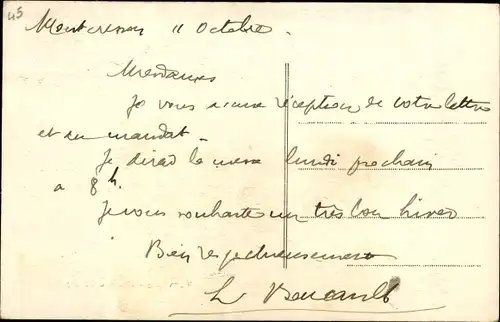 45
Montcresson 11 Octobre.
Mesdames
Je vous accuse réception de votre lettre
et du mandat.
Je dirai la messe lundi prochain
a 8h.
Je vous souhaite un très bon hiver
Bien respectueusement